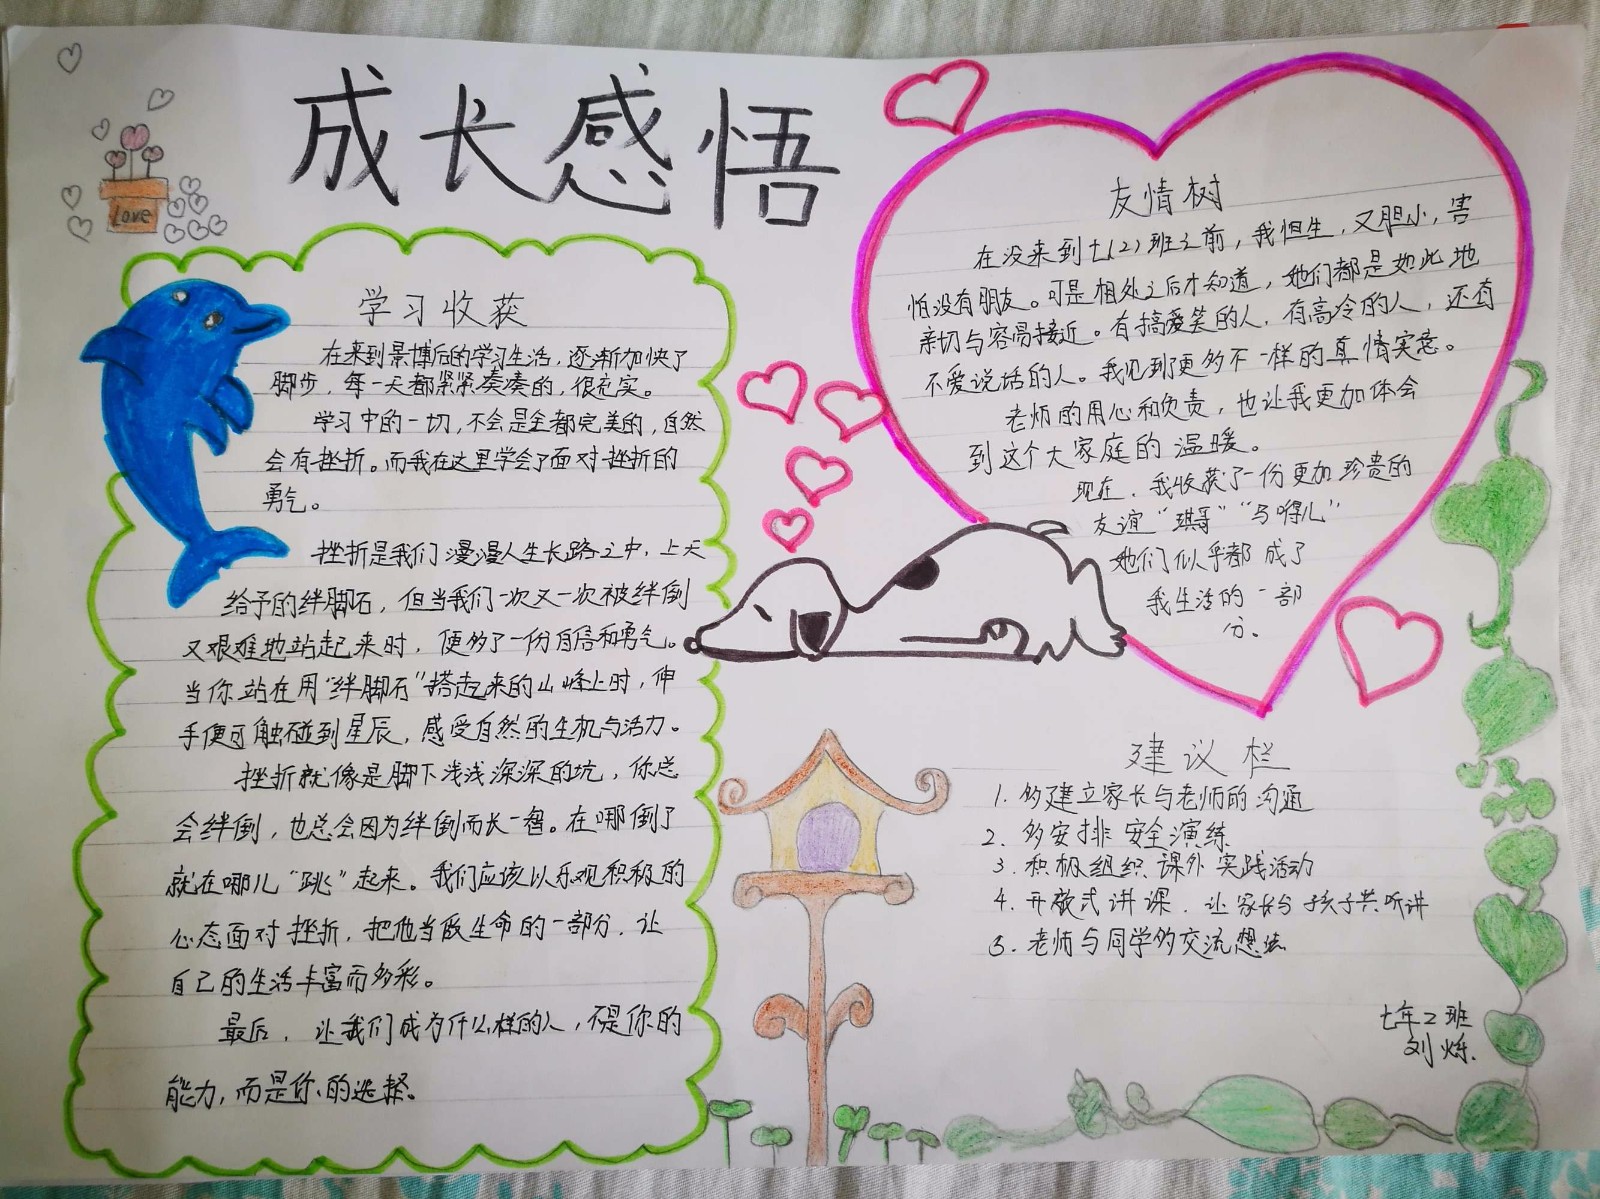 成长感悟
Love
学习收获
在来到景博后的学习生活，逐渐加快了
脚步，每一天都紧紧凑凑的，很充实。
学习中的一切，不会是全都完美的，自然
会有挫折。而我在这里学会了面对挫折的
勇气。
挫折是我们漫漫人生长路之中，上天
给予的绊脚石，但当我们一次又一次被绊倒
又艰难地站起来时，便多了一份自信和勇气。
当你站在用“绊脚石”搭起来的山峰上时，伸
手便可触碰到星辰，感受自然的生机与活力。
挫折就像是脚下浅浅深深的坑，你总
会绊倒，也总会因为绊倒而长一智。在哪倒了
就在哪儿“跳”起来。我们应该以乐观积极的
心态面对挫折，把他当做生命的一部分，让
自己的生活丰富而多彩。
最后，让我们成为什么样的人，不是你的
能力，而是你的选择。
友情树
在没来到七(2)班之前，我怕生，又胆小，害
怕没有朋友。可是相处之后才知道，她们都是如此地
亲切与容易接近。有搞爱笑的人，有高冷的人，还有
不爱说话的人。我见到了更多不一样的真情实意。
老师的用心和负责，也让我更加体会
到这个大家庭的温暖。
现在，我收获了一份更加珍贵的
友谊“琪哥”“马嘚儿”
她们似乎都成了
我生活的一部
分。
建议栏
1. 多建立家长与老师的沟通
2. 多安排安全演练
3. 积极组织课外实践活动
4. 开放式讲课，让家长与孩子共听讲
5. 老师与同学多交流想法
七年2班
刘烁